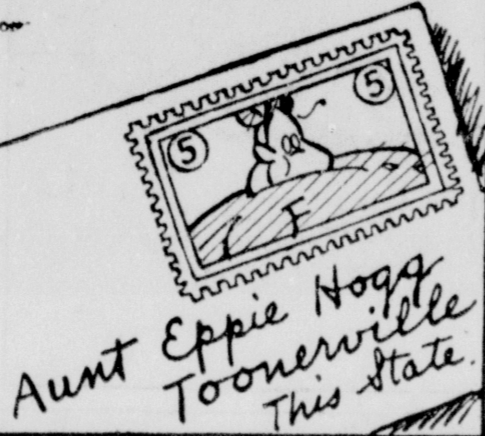 5 5
Aunt Eppie Hogg
Toonerville
This State.